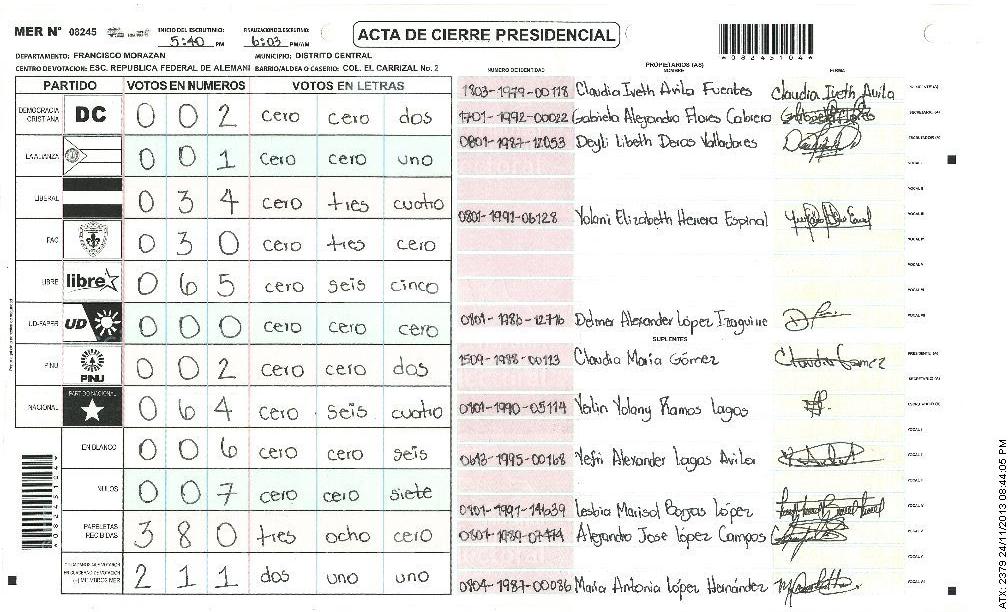 MER N° 08245
INICIO DEL ESCRUTINIO: 5:40 PM
FINALIZACION DEL ESCRUTINIO: 6:03 PM/AM
ACTA DE CIERRE PRESIDENCIAL
*08245104*
DEPARTAMENTO: FRANCISCO MORAZAN MUNICIPIO: DISTRITO CENTRAL
CENTRO DE VOTACION: ESC. REPUBLICA FEDERAL DE ALEMANI BARRIO/ALDEA O CASERIO: COL. EL CARRIZAL No. 2
PARTIDO VOTOS EN NUMEROS VOTOS EN LETRAS
DEMOCRACIA CRISTIANA DC 0 0 2 cero cero dos
LA ALIANZA 0 0 1 cero cero uno
LIBERAL 0 3 4 cero tres cuatro
PAC 0 3 0 cero tres cero
LIBRE libre 0 6 5 cero seis cinco
UD-FAPER UD 0 0 0 cero cero cero
PINU PINU 0 0 2 cero cero dos
NACIONAL PARTIDO NACIONAL 0 6 4 cero seis cuatro
EN BLANCO 0 0 6 cero cero seis
NULOS 0 0 7 cero cero siete
PAPELETAS RECIBIDAS 3 8 0 tres ocho cero
2 1 1 dos uno uno
NUMERO DE IDENTIDAD PROPIETARIOS (AS) NOMBRE FIRMA
1803-1979-00118 Claudia Iveth Avila Fuentes Claudia Iveth Avila
1701-1992-00022 Gabriela Alejandra Flores Cabrera
0801-1987-12053 Deyli Libeth Deras Valladares
0801-1991-06128 Yolani Elizabeth Herrera Espinal
0801-1986-12716 Delmer Alexander López Izaguirre
SUPLENTES
1509-1988-00113 Claudia Maria Gómez Claudia Gomez
0801-1990-05114 Yerlin Yolany Ramos Lagos
0613-1995-00168 Yefri Alexander Lagos Avila
0801-1991-14639 Lesbia Marisol Borjas López
0801-1989-07474 Alejandro Jose López Campos
0804-1987-00036 Maria Antonia López Hernández
ATX: 2379 24/11/2013 08:44:05 PM